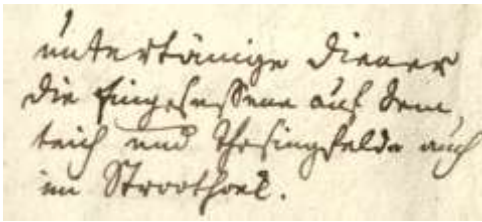 untertänige Diener
die Eingesessene auf dem
teich und Thesingfelde auch
im Stroothoek.